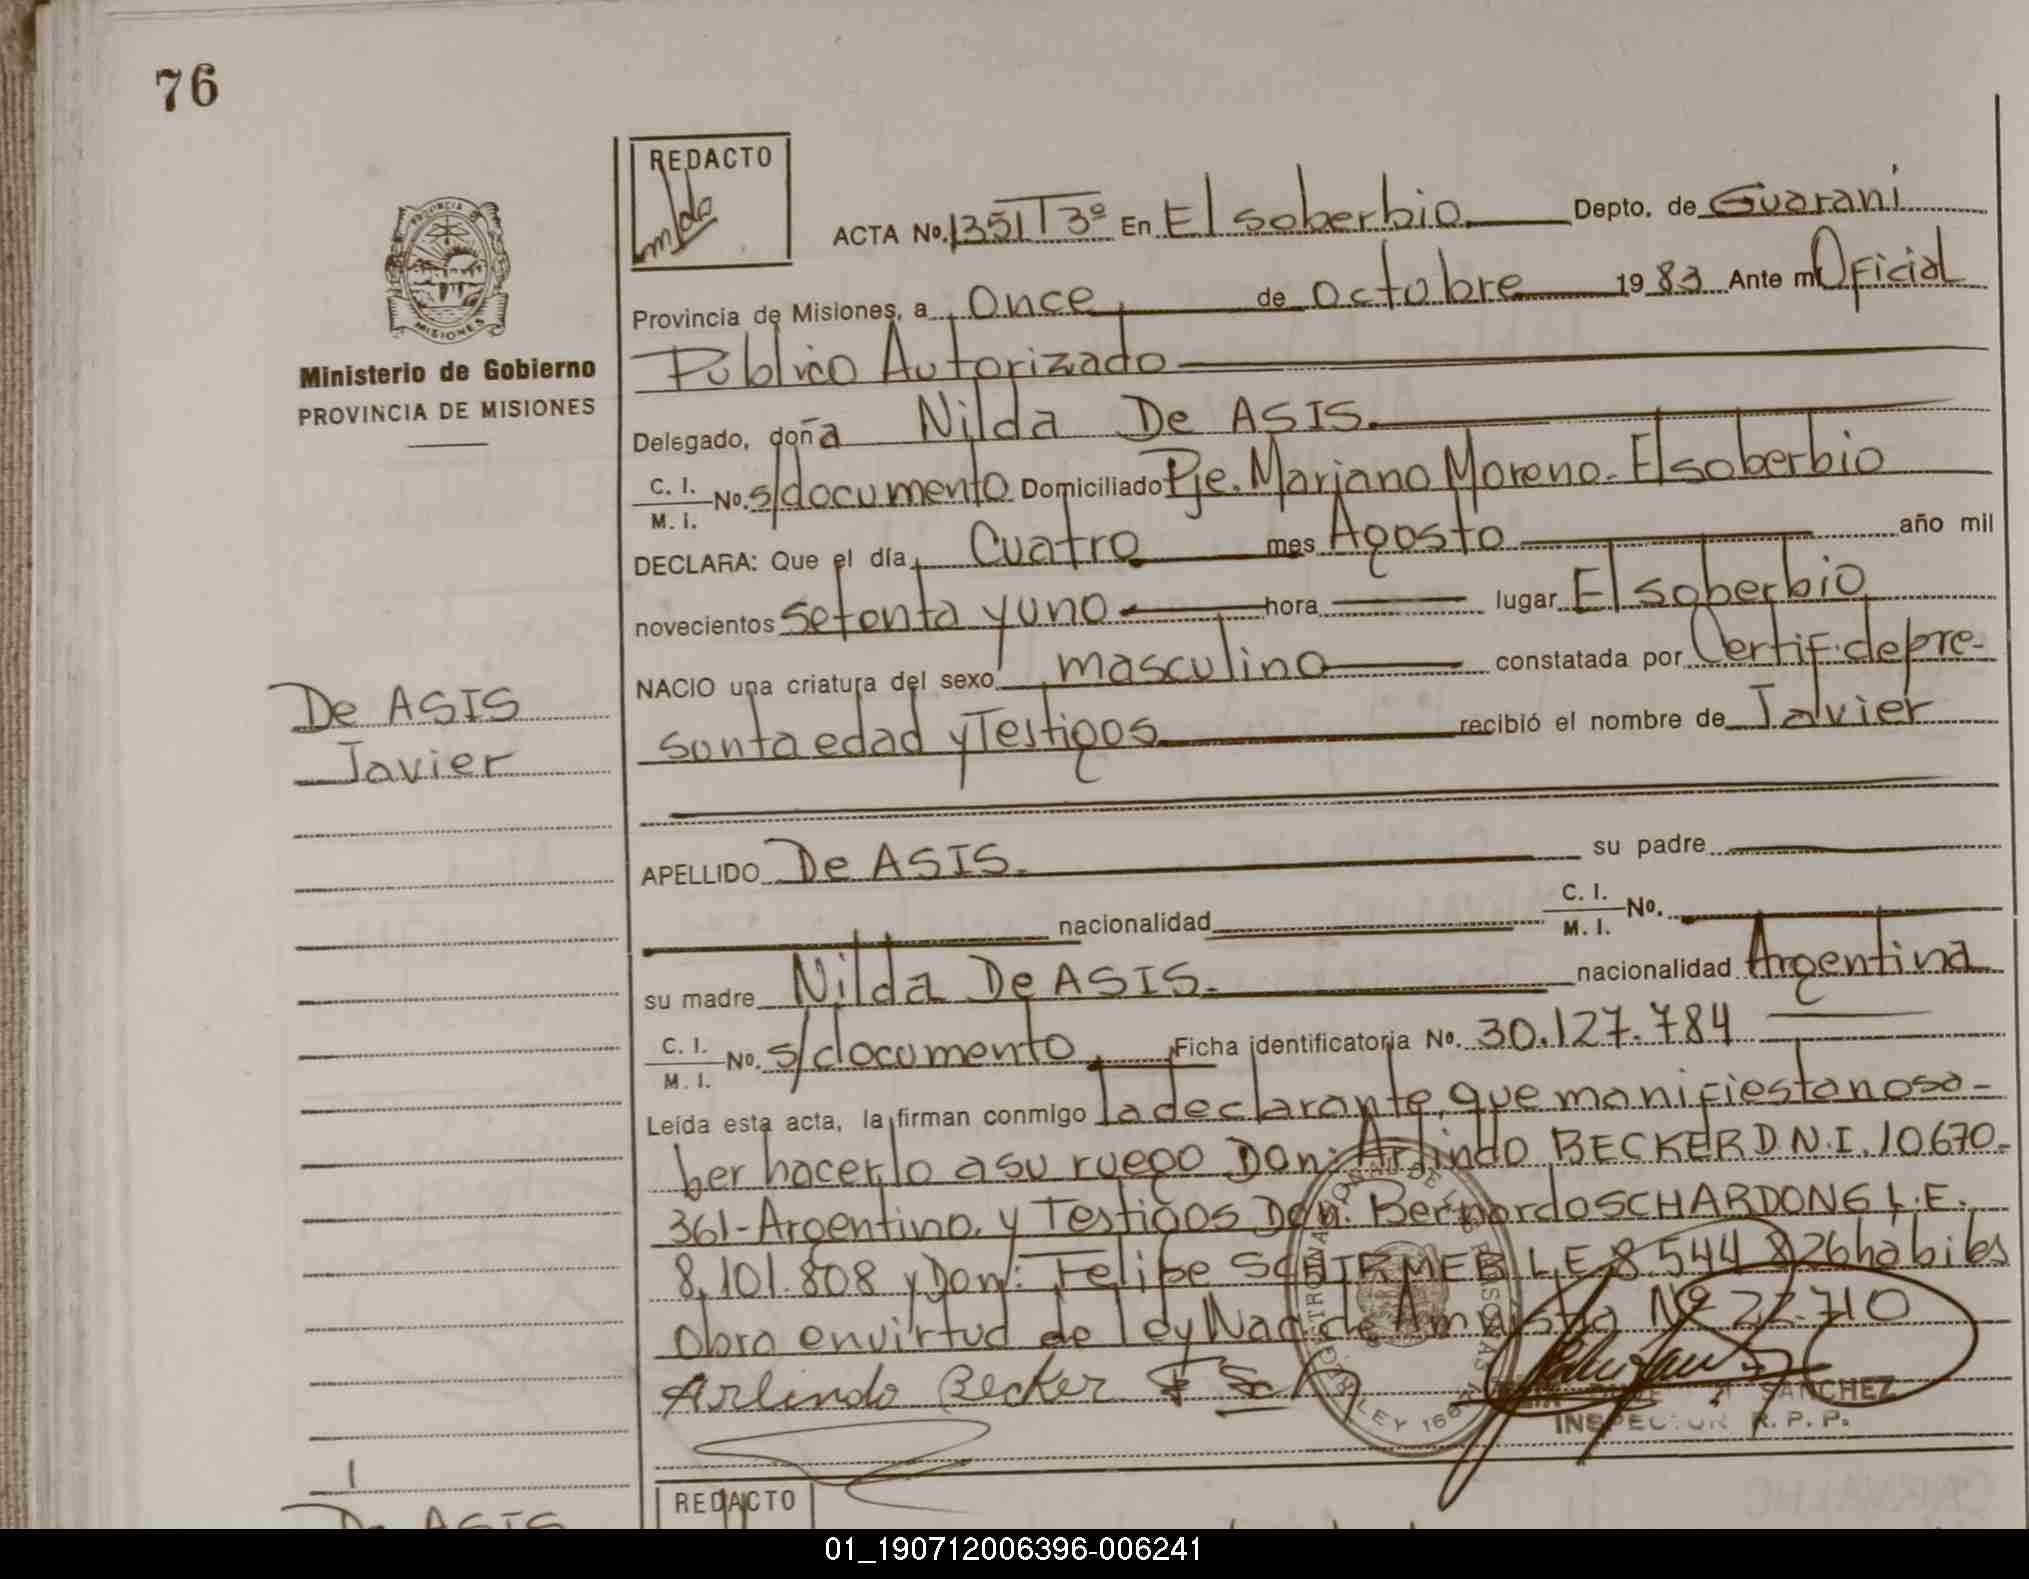 76
REDACTO
ACTA No. 1351 T 3º En El soberbio Depto. de Guarani
Provincia de Misiones, a Once de octubre 1983 Ante mi Oficial
Público Autorizado
Ministerio de Gobierno
PROVINCIA DE MISIONES
Delegado, doña Nilda De ASIS.
C. I.
M. I. No. s/documento Domiciliado Pje. Mariano Moreno. El soberbio
DECLARA: Que el día Cuatro mes Agosto año mil
novecientos setenta y uno hora lugar El soberbio
NACIO una criatura del sexo masculino constatada por Certif. de pre-
sunta edad y Testigos recibió el nombre de Javier
De ASIS
Javier
APELLIDO De ASIS. su padre
nacionalidad C. I.
M. I. No.
su madre Nilda De ASIS. nacionalidad Argentina
C. I.
M. I. No. s/documento Ficha identificatoria No. 30.127.784
Leída esta acta, la firman conmigo la declarante, que manifiesta no sa-
ber hacerlo a su ruego Don: Arlindo BECKER D.N.I. 10670-
361-Argentino. y Testigos Don: Bernardo SCHARDONG L.E.
8.101.808 y Don: Felipe SCHIRMER L.E. 8.544.826 habiles
Obra en virtud de ley Nac. de Amnistia Nº 22.710
Arlindo Becker
LEY
SANCHEZ
INSPECTOR R. P. P.
REDACTO
De ASIS
01_190712006396-006241